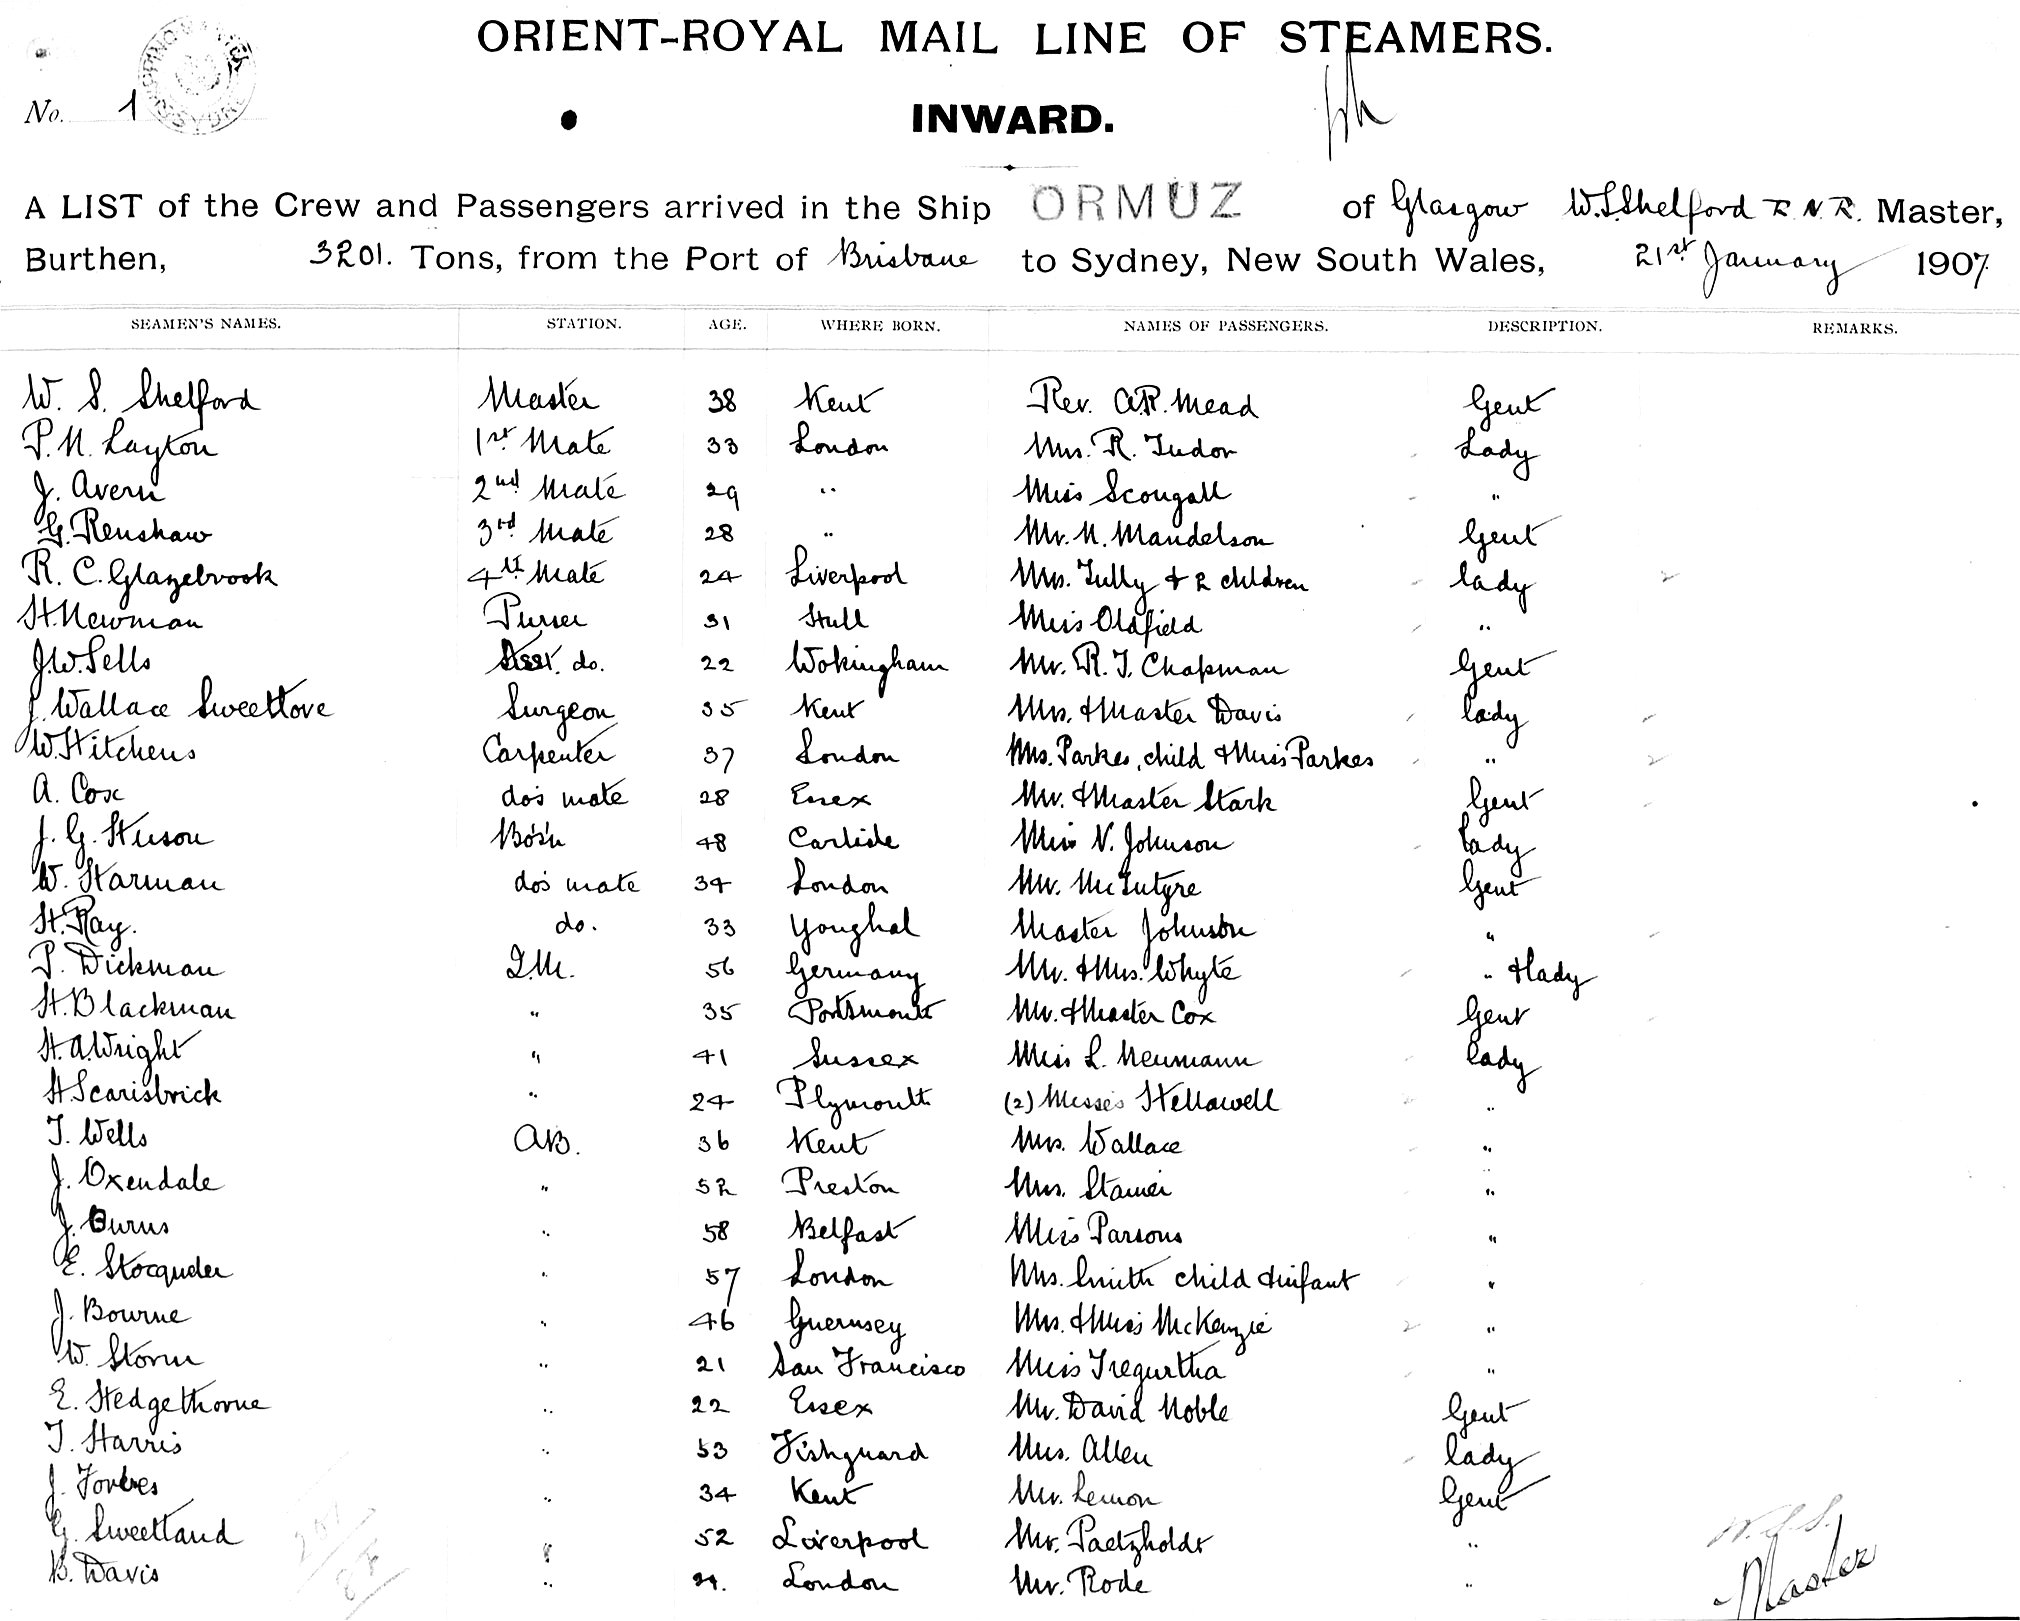 ORIENT-ROYAL MAIL LINE OF STEAMERS.
No. 1
INWARD.
A LIST of the Crew and Passengers arrived in the Ship ORMUZ of Glasgow W.S. Shelford R.N.R. Master,
Burthen, 3201. Tons, from the Port of Brisbane to Sydney, New South Wales, 21st January 1907
SEAMEN'S NAMES. STATION. AGE. WHERE BORN. NAMES OF PASSENGERS. DESCRIPTION. REMARKS.
W. S. Shelford Master 38 Kent Rev. A.R. Mead Gent
P. N. Layton 1st Mate 33 London Mrs. R. Tudor Lady
J. Avern 2nd Mate 29 " Miss Scougall "
G. Renshaw 3rd Mate 28 " Mr. N. Mandelson Gent
R. C. Glazebrook 4th Mate 24 Liverpool Mrs. Tully & 2 children lady
H. Newman Purser 31 Hull Miss Oldfield "
J.W. Sells Asst. do. 22 Wokingham Mr. R. T. Chapman Gent
J. Wallace Sweetlove Surgeon 35 Kent Mrs. & Master Davis lady
W. Hitchens Carpenter 37 London Mrs. Parkes, child & Miss Parkes "
A. Cox do's mate 28 Essex Mr. & Master Stark Gent
J. G. Huson Bo's'n 48 Carlisle Miss V. Johnson lady
W. Harman do's mate 34 London Mr. McIntyre Gent
H. Ray. do. 33 Youghal Master Johnson "
P. Dickman Q.M. 56 Germany Mr. & Mrs. Whyte " & lady
H. Blackman " 35 Portsmouth Mr. & Master Cox Gent
H. A. Wright " 41 Sussex Miss L. Neumann lady
H. Scarisbrick " 24 Plymouth (2) Misses Hellawell "
T. Wells AB. 36 Kent Mrs. Wallace "
J. Oxendale " 52 Preston Mrs. "
J. Burns " 58 Belfast Miss Parsons "
E. Stocqueler " 57 London Mrs. Smith child & infant "
J. Bourne " 46 Guernsey Mrs. & Miss McKenzie "
W. Storm " 21 San Francisco Miss Tregurtha "
E. Hedgethorne " 22 Essex Mr. David Noble Gent
T. Harris " 53 Fishguard Mrs. Allen lady
J. Forbes " 34 Kent Mr. Lemon Gent
G. Sweetland " 52 Liverpool Mr. Paetzholdt "
B. Davis " London Mr. Rode "
W.S.S.
Master